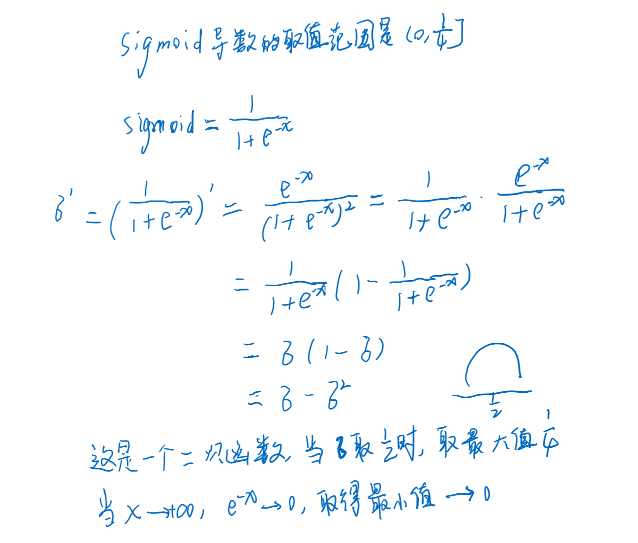 sigmoid导数的取值范围是(0,1/4]
sigmoid = 1/(1+e^-x)
σ' = (1/(1+e^-x))' = e^-x/(1+e^-x)^2 = 1/(1+e^-x) · e^-x/(1+e^-x)
= 1/(1+e^-x) (1 - 1/(1+e^-x))
= σ(1-σ)
= σ-σ^2
1/2
这是一个二次函数,当σ取1/2时,取最大值1/4
当x→+∞, e^-x→0, 取得最小值→0